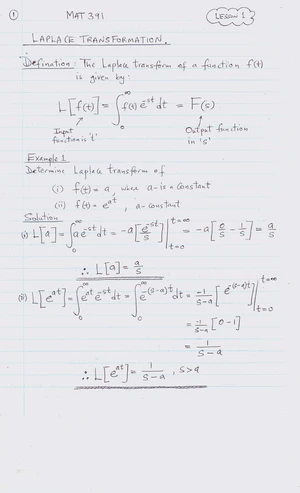 ① MAT 391 LESSON 1
LAPLACE TRANSFORMATION.
Defination: The Laplace transform of a function f(t)
is given by:
L[f(t)] = ∫₀^∞ f(t) e^{-st} dt = F(s)
Input function is 't'
Output function in 's'
Example 1
Determine Laplace transform of
(i) f(t) = a, where a - is a constant
(ii) f(t) = e^{at}, a - constant
Solution
(i) L[a] = ∫₀^∞ a e^{-st} dt = -a[e^{-st}/s] |_{t=0}^{t=∞} = -a[0/s - 1/s] = a/s
∴ L[a] = a/s
(ii) L[e^{at}] = ∫₀^∞ e^{at} e^{-st} dt = ∫₀^∞ e^{-(s-a)t} dt = -1/(s-a) [e^{-(s-a)t}] |_{t=0}^{t=∞}
= -1/(s-a) [0-1]
= 1/(s-a)
∴ L[e^{at}] = 1/(s-a), s>a